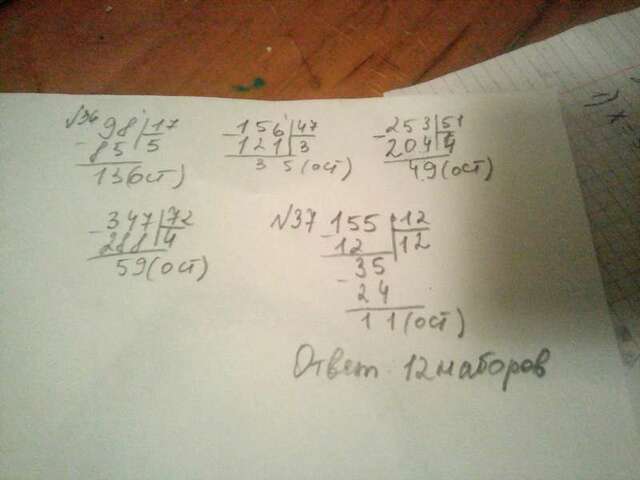 №36 98 17 156 47 253 51
- 85 5 - 121 3 - 204 4
13(ост) 35(ост) 49(ост)
347 72 №37 155 12
- 288 4 - 12 12
59(ост) 35
- 24
11(ост)
Ответ 12 наборов